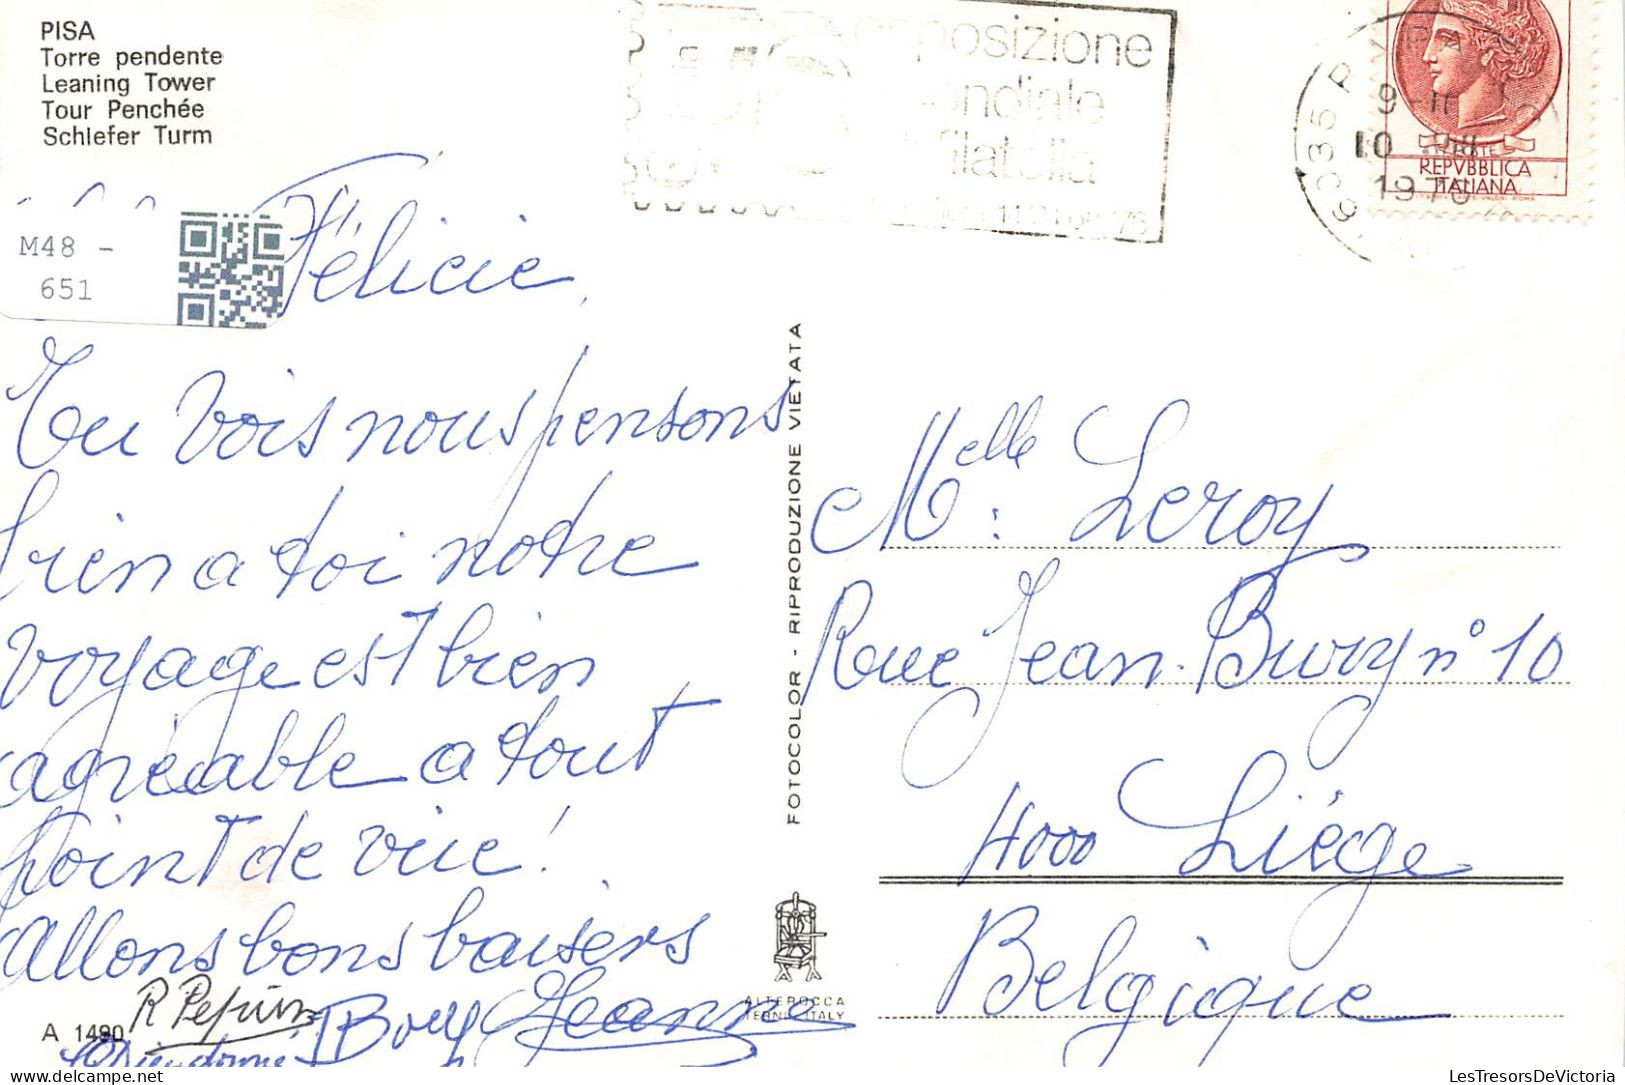 PISA
Torre pendente
Leaning Tower
Tour Penchée
Schlefer Turm
esposizione
mondiale
filatelia
76
1976
POSTE
REPVBBLICA
ITALIANA
M48 -
651
Félicie,
Tu vois nous pensons
bien a toi notre
voyage est bien
agréable a tout
point de vue!
Allons bons baisers
R Pepin
Jeanne
A 1490
FOTOCOLOR - RIPRODUZIONE VIETATA
ALTEROCCA
TERNI ITALY
Melle: Leroy
Rue Jean Bury n° 10
4000 Liége
Belgique
LesTresorsDeVictoria
delcampe.net